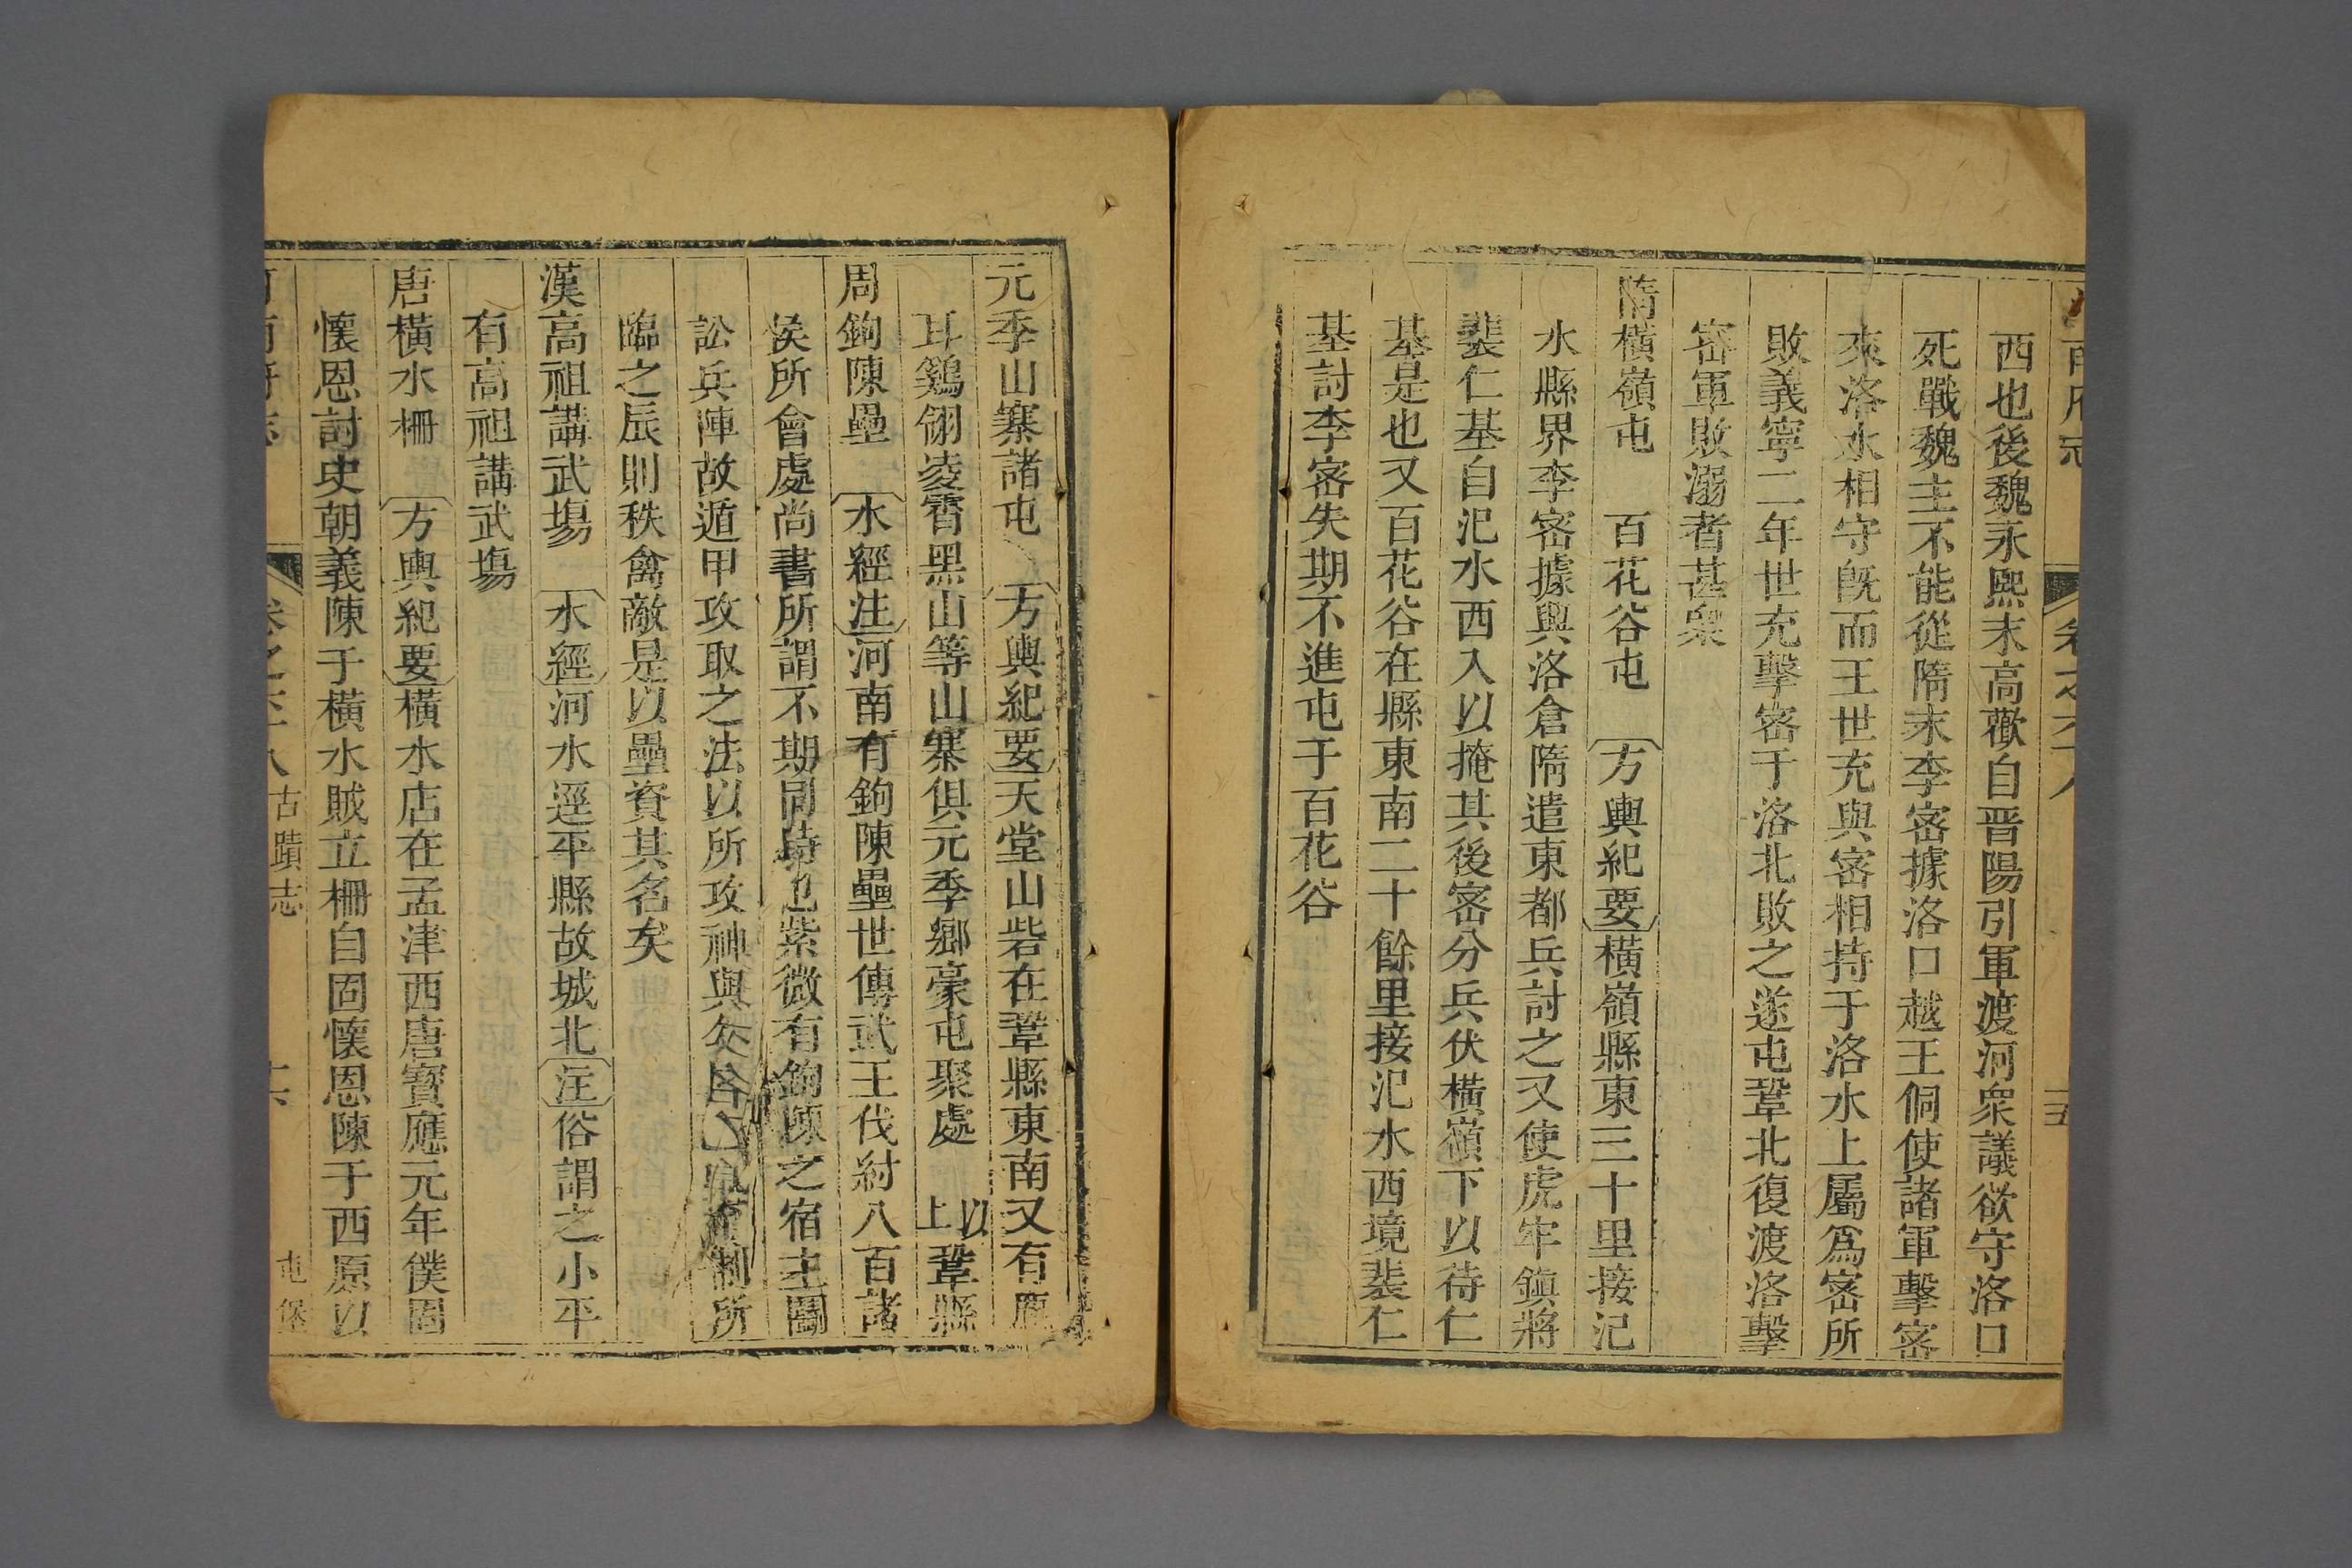 南府志 卷之六八 十五
西也後魏永熙末高歡自晉陽引軍渡河衆議欲守洛口
死戰魏主不能從隋末李密據洛口越王侗使諸軍擊密
來洛水相守旣而王世充與密相持于洛水上屬爲密所
敗義寧二年世充擊密于洛北敗之遂屯鞏北復渡洛擊
密軍敗溺者甚衆
隋橫嶺屯 百花谷屯 方輿紀要橫嶺縣東三十里接汜
水縣界李密據興洛倉隋遣東都兵討之又使虎牢鎭將
裴仁基自汜水西入以掩其後密分兵伏橫嶺下以待仁
基是也又百花谷在縣東南二十餘里接汜水西境裴仁
基討李密失期不進屯于百花谷
元季山寨諸屯 方輿紀要天堂山砦在鞏縣東南又有鹿
耳鷄翎凌霄黑山等山寨俱元季鄉豪屯聚處 以上鞏縣
周鉤陳壘 水經注河南有鉤陳壘世傳武王伐紂八百諸
侯所會處尚書所謂不期同時也紫微有鉤陳之宿主鬬
訟兵陣故遁甲攻取之法以所攻神與 制所
臨之辰則秩禽敵是以壘資其名矣
漢高祖講武場 水經河水逕平縣故城北注俗謂之小平
有高祖講武場
唐橫水柵 方輿紀要橫水店在孟津西唐寶應元年僕固
懷恩討史朝義陳于橫水賊立柵自固懷恩陳于西原以
古蹟志 屯堡